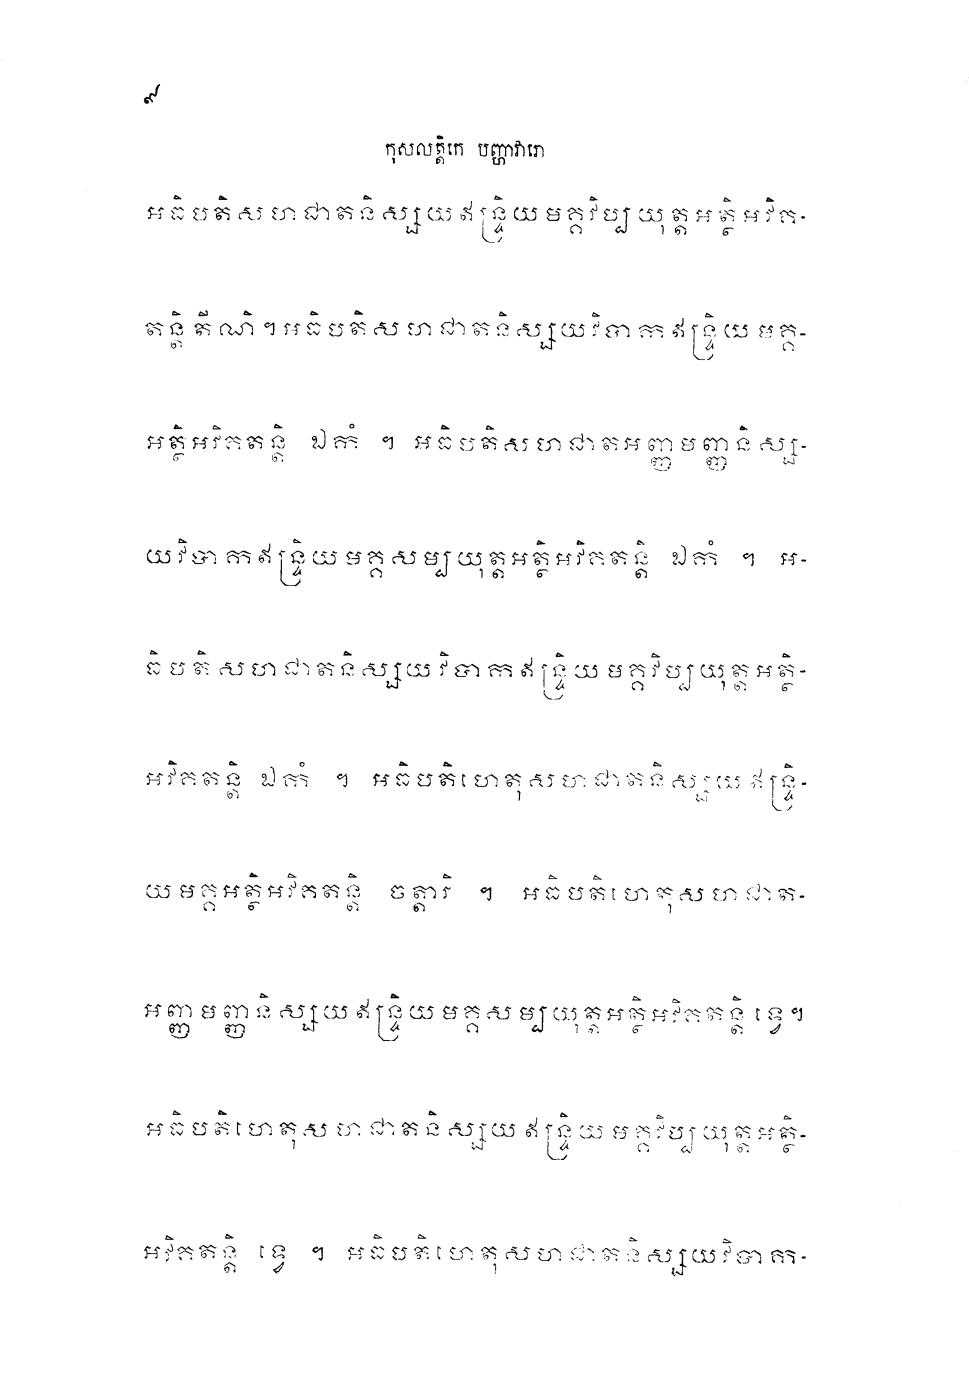 ៩
កុសលត្តិកេ បញ្ហាវារោ
អធិបតិសហជាតនិស្សយឥន្ទ្រិយមគ្គវិប្បយុត្តអត្ថិអវិគ-
តន្តិ តីណិ។ អធិបតិសហជាតនិស្សយវិបាកឥន្ទ្រិយមគ្គ-
អត្ថិអវិគតន្តិ ឯកំ ។ អធិបតិសហជាតអញ្ញមញ្ញនិស្ស-
យវិបាកឥន្ទ្រិយមគ្គសម្បយុត្តអត្ថិអវិគតន្តិ ឯកំ ។ អ-
ធិបតិសហជាតនិស្សយវិបាកឥន្ទ្រិយមគ្គវិប្បយុត្តអត្ថិ-
អវិគតន្តិ ឯកំ ។ អធិបតិហេតុសហជាតនិស្សយឥន្ទ្រិ-
យមគ្គអត្ថិអវិគតន្តិ ចត្តារិ ។ អធិបតិហេតុសហជាត-
អញ្ញមញ្ញនិស្សយឥន្ទ្រិយមគ្គសម្បយុត្តអត្ថិអវិគតន្តិ ទ្វេ។
អធិបតិហេតុសហជាតនិស្សយឥន្ទ្រិយមគ្គវិប្បយុត្តអត្ថិ-
អវិគតន្តិ ទ្វេ ។ អធិបតិហេតុសហជាតនិស្សយវិបាក-